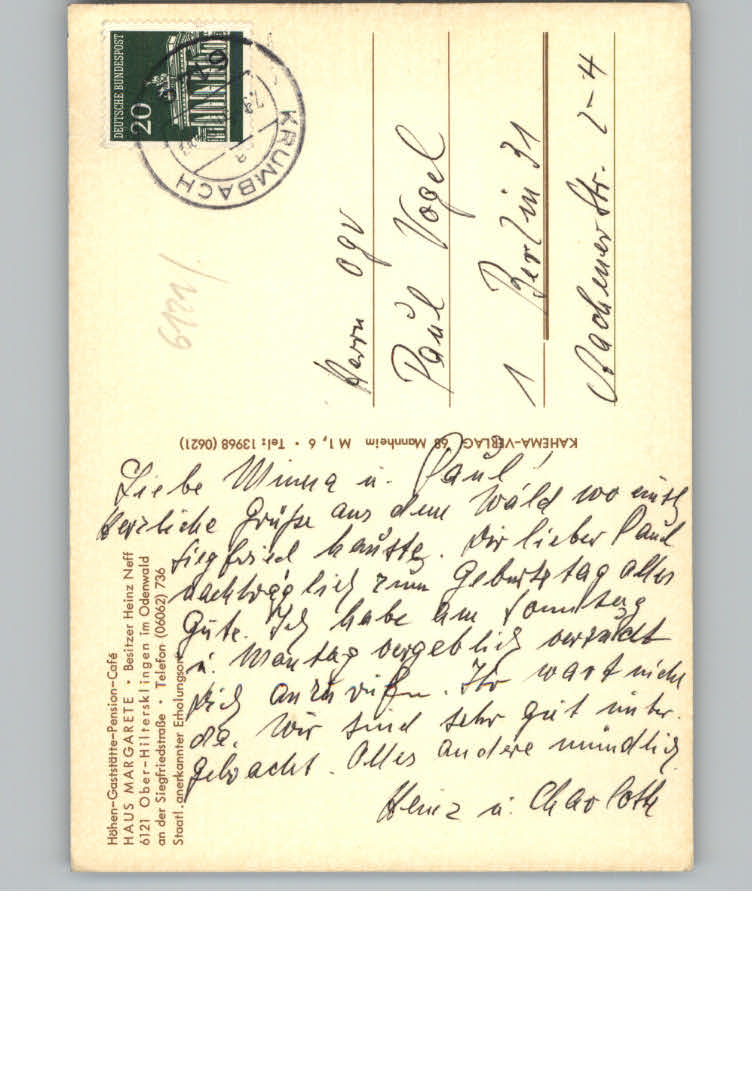 Höhen-Gaststätte-Pension-Café
HAUS MARGARETE • Besitzer Heinz Neff
6121 Ober-Hiltersklingen im Odenwald
an der Siegfriedstraße • Telefon (06062) 736
Staatl. anerkannter Erholungsort
Liebe Minna u. Paul!
Herzliche Grüße aus dem Wald wo einst
Siegfried hauste. Dir lieber Paul
nachträglich zum Geburtstag alles
Gute. Ich habe am Sonntag
u. Montag vergeblich versucht
Dich anzurufen. Ihr wart nicht
da. Wir sind sehr gut unter-
gebracht. Alles andere mündlich
Heinz u. Charlotte
KAHEMA-VERLAG 68 Mannheim M 1, 6 • Tel: 13968 (0621)
DEUTSCHE BUNDESPOST
20
KRUMBACH
6121/
Herrn OGV
Paul Vogel
1 Berlin 31
Aachener Str. 2-4